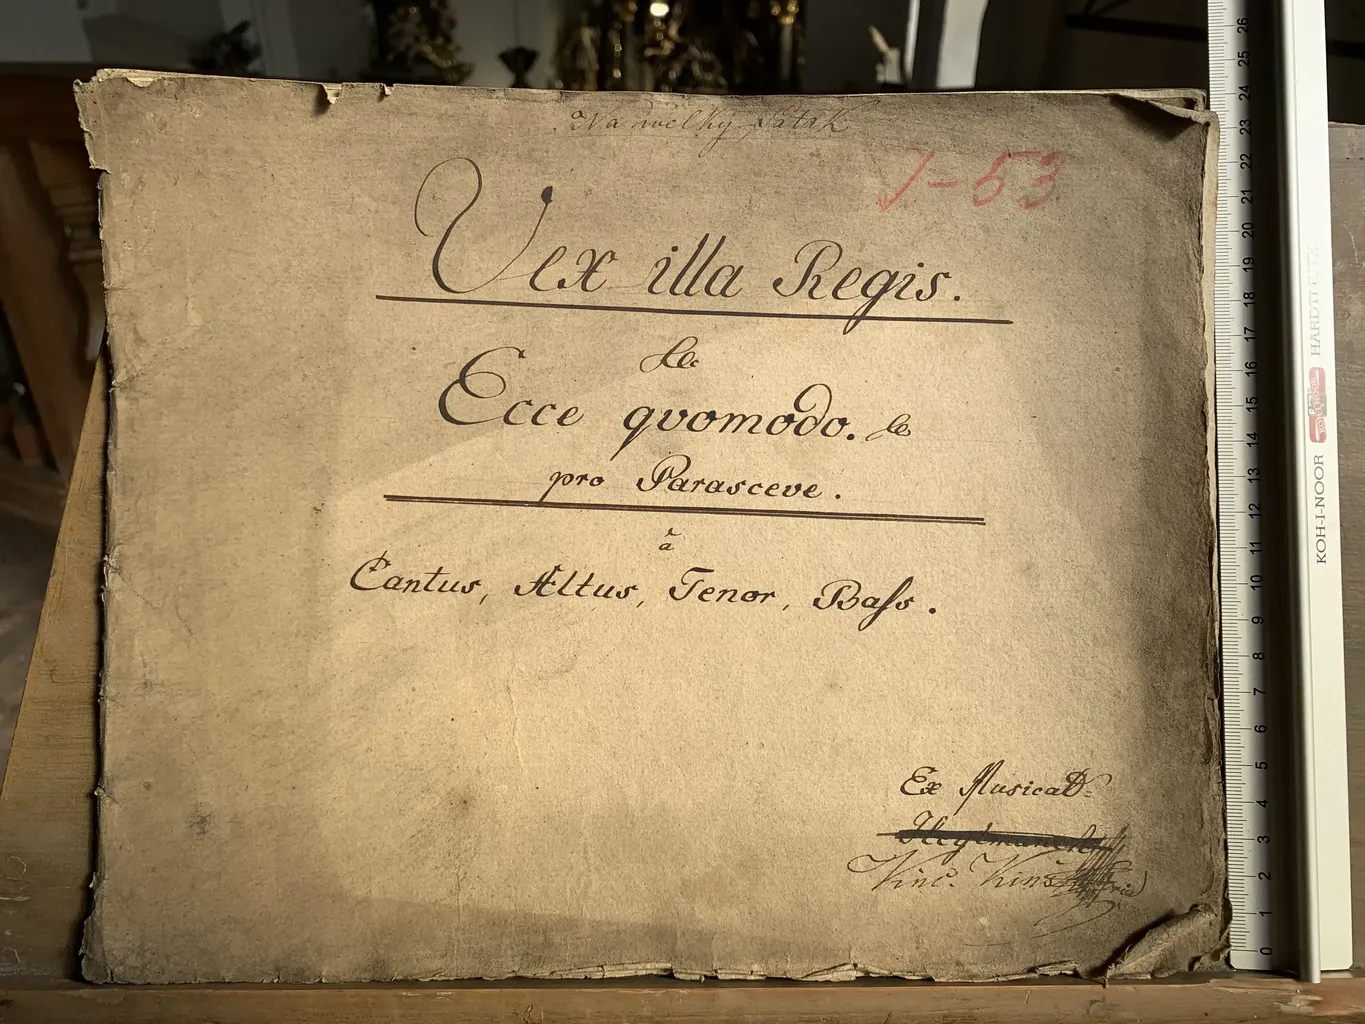 Na welký Pátek
J-53
Vex illa Regis.
&c
Ecce qvomodo. &c
pro Parasceve.
à
Cantus, Altus, Tenor, Bass.
Ex Musical:
Vinc.
26
25
24
23
22
21
20
19
18
17
16
15
14
13
12
11
10
9
8
7
6
5
4
3
2
1
0
KOH-I-NOOR
KOH-I-NOOR HARDTMUTH